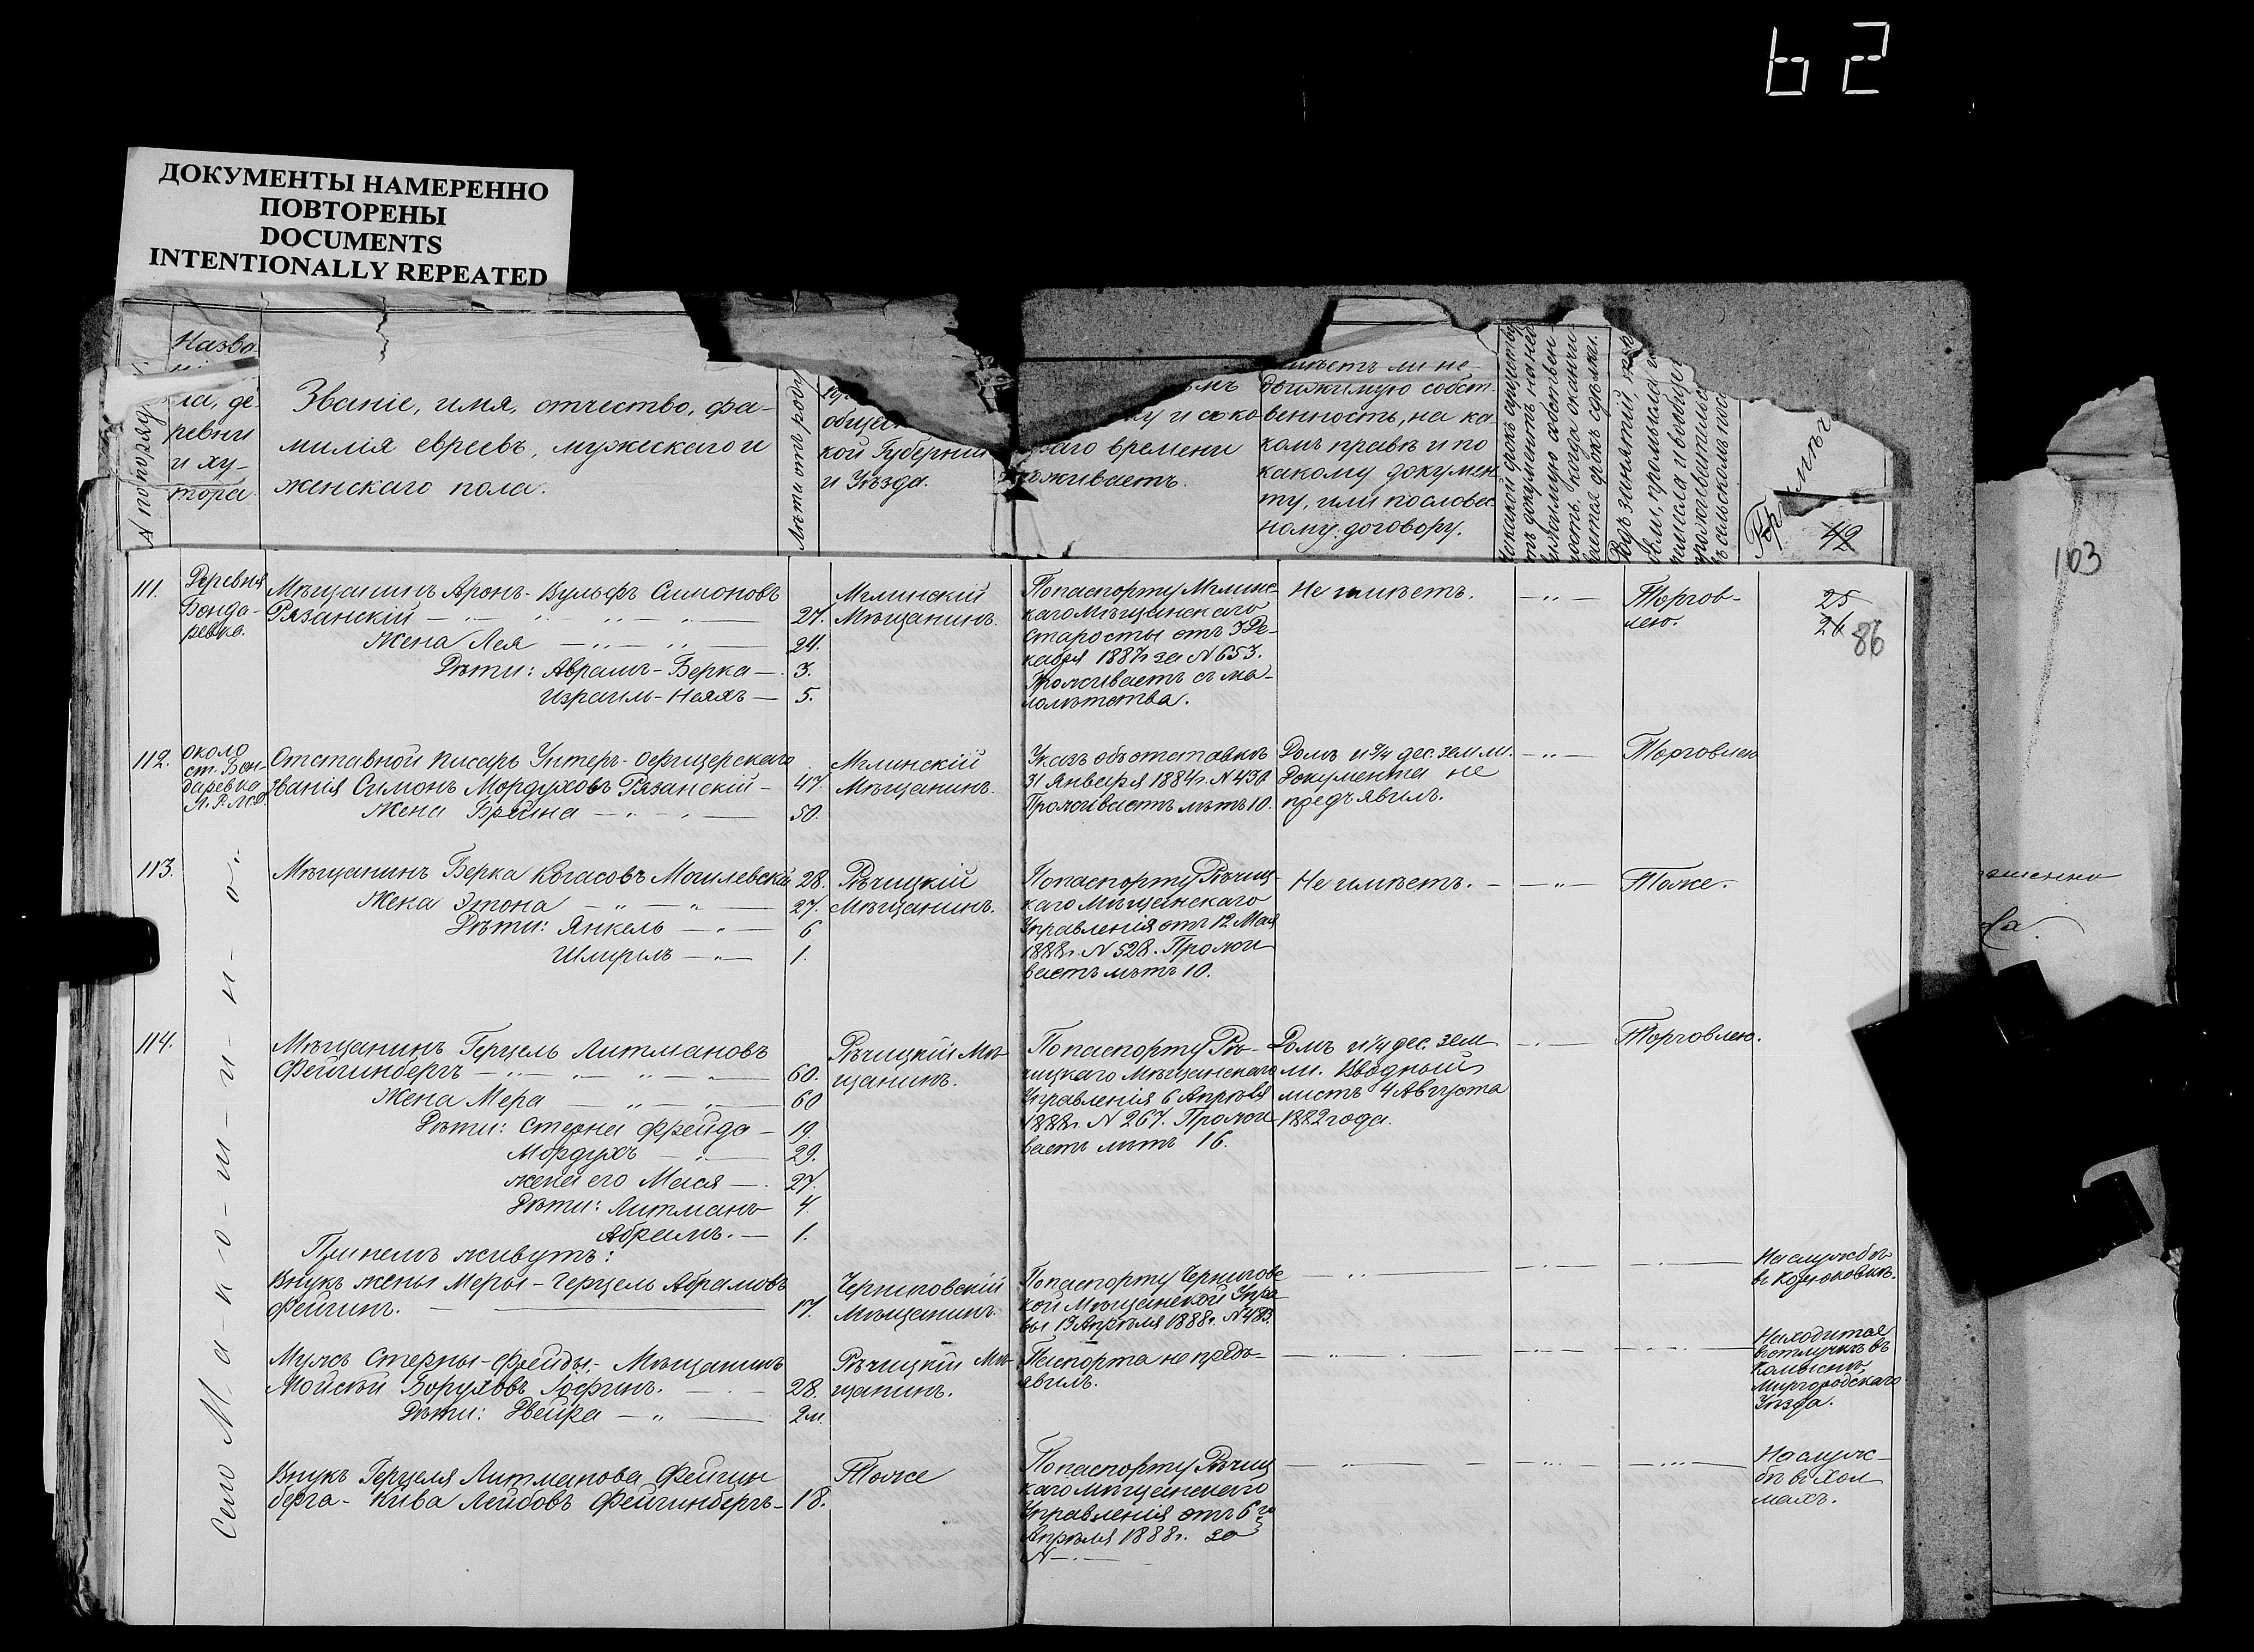 62
ДОКУМЕНТЫ НАМЕРЕННО
ПОВТОРЕНЫ
DOCUMENTS
INTENTIONALLY REPEATED
Назва
ла, де-
ревни
и ху-
тора.
Званіе, имя, отчество, фа-
милія евреевъ, мужескаго и
женскаго пола.
Лѣты отъ роду
общест
кой Губерніи
и Уѣзда.
у и скако
ваго времени
оживаетъ.
имѣетъ ли не-
движимую собст-
венность, на ка-
комъ правѣ и по
какому докумен-
ту, или по словес-
ному договору.
42
103
111.
Деревня
Бонда-
ревка.
Мѣщанинъ Аронъ-Вульфъ Симоновъ
Рязанскій — 27.
Жена Лея — 24.
Дѣти: Аврамъ-Берка — 3.
Израиль-Ноахъ — 5.
Мглинскій
Мѣщанинъ.
По паспорту Мглинс-
каго Мѣщанскаго
старосты отъ 3 Де-
кабря 1887г за N 653.
Проживаетъ съ ма-
лолѣтства.
Не имѣетъ.
Торгов-
лею.
25
26
86
112.
около
ст. Бон-
даревка
Отставной писарь Унтеръ-офицерскаго
званія Симонъ Мордуховъ Рязанскій — 47
Жена Брейна — 50.
Мглинскій
Мѣщанинъ.
Указъ объ отставкѣ
31 Января 1884г. N 430
Проживаетъ лѣтъ 10.
Домъ и 3/4 дес. земли.
Документа не
предъявилъ.
Торговлею
113.
Мѣщанинъ Берка Могилевскій 28.
Жена — 27.
Дѣти: Янкель — 6
Шмуилъ — 1.
Рѣчицкій
Мѣщанинъ.
По паспорту Рѣчиц-
каго Мѣщанскаго
Управленія отъ 12 Мая
1888г. N 528. Прожи-
ваетъ лѣтъ 10.
Не имѣетъ.
Тоже.
114.
Мѣщанинъ Герцель Литмановъ
Фейгинбергъ — 60.
Жена Мера — 60
Дѣти: Стерна Фрейда — 19.
Мордухъ — 29.
жена его Мася — 27.
Дѣти: Литманъ 4.
Абрамъ. — 1.
Рѣчицкій Мѣ-
щанинъ.
По паспорту Рѣ-
чицкаго Мѣщанскаго
Управленія 6 Апрѣля
1888г. N 267. Прожи-
ваетъ лѣтъ 16.
Домъ и 1/4 дес. зем-
ли. Вводный
листъ 4 Августа
1882 года.
Торговлею.
При немъ живутъ:
Внукъ жены Меры - Герцель Абрамовъ
Фейгинъ. — 17.
Черниговскій
Мѣщанинъ.
По паспорту Черниговс-
кой Мѣщанской Упра-
вы 19 Апрѣля 1888г. N 483.
На службѣ
Мужъ Стерны-Фрейды - Мѣщанинъ
Мойсей Боруховъ 28.
Дѣти: Двейра — 2 м.
Рѣчицкій Мѣ-
щанинъ.
Паспорта не предъ-
явилъ.
Находится
въ отлучкѣ въ
Миргородскаго
Уѣзда.
Внукъ Герцеля Литманова Фейгин
берга - Кива Лейбовъ Фейгинбергъ — 18.
Тоже
По паспорту Рѣчиц
каго мѣщанскаго
Управленія отъ 6го
Апрѣля 1888г. за
N —
На служ-
бѣ въ Хол
махъ.
Село М-а-к-о-ш-и-н-о